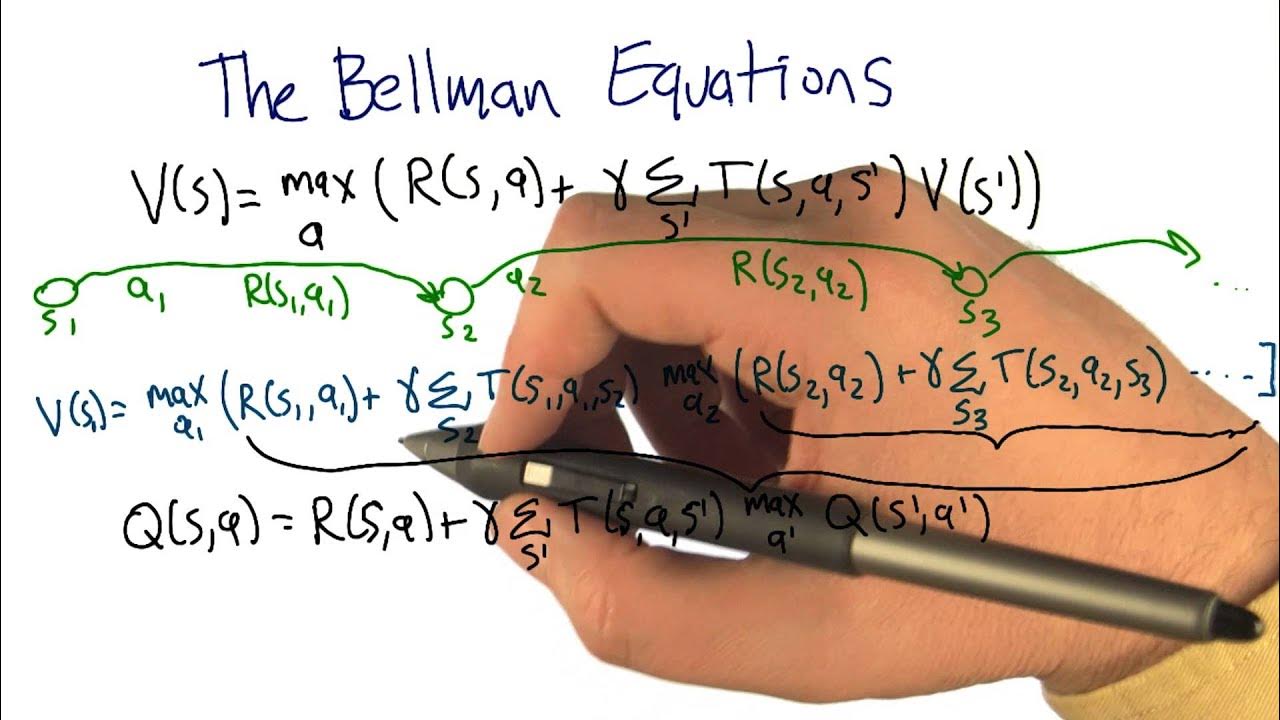 The Bellman Equations
V(s) = max a (R(s,a) + γ Σ s' T(s,a,s') V(s'))
a₁ R(s₁,a₁) a₂ R(s₂,a₂) ....
s₁ s₂ s₃
V(s₁) = max a₁ (R(s₁,a₁) + γ Σ s₂ T(s₁,a₁,s₂) max a₂ (R(s₂,a₂) + γ Σ s₃ T(s₂,a₂,s₃) .....]
Q(s,a) = R(s,a) + γ Σ s' T(s,a,s') max a' Q(s',a')